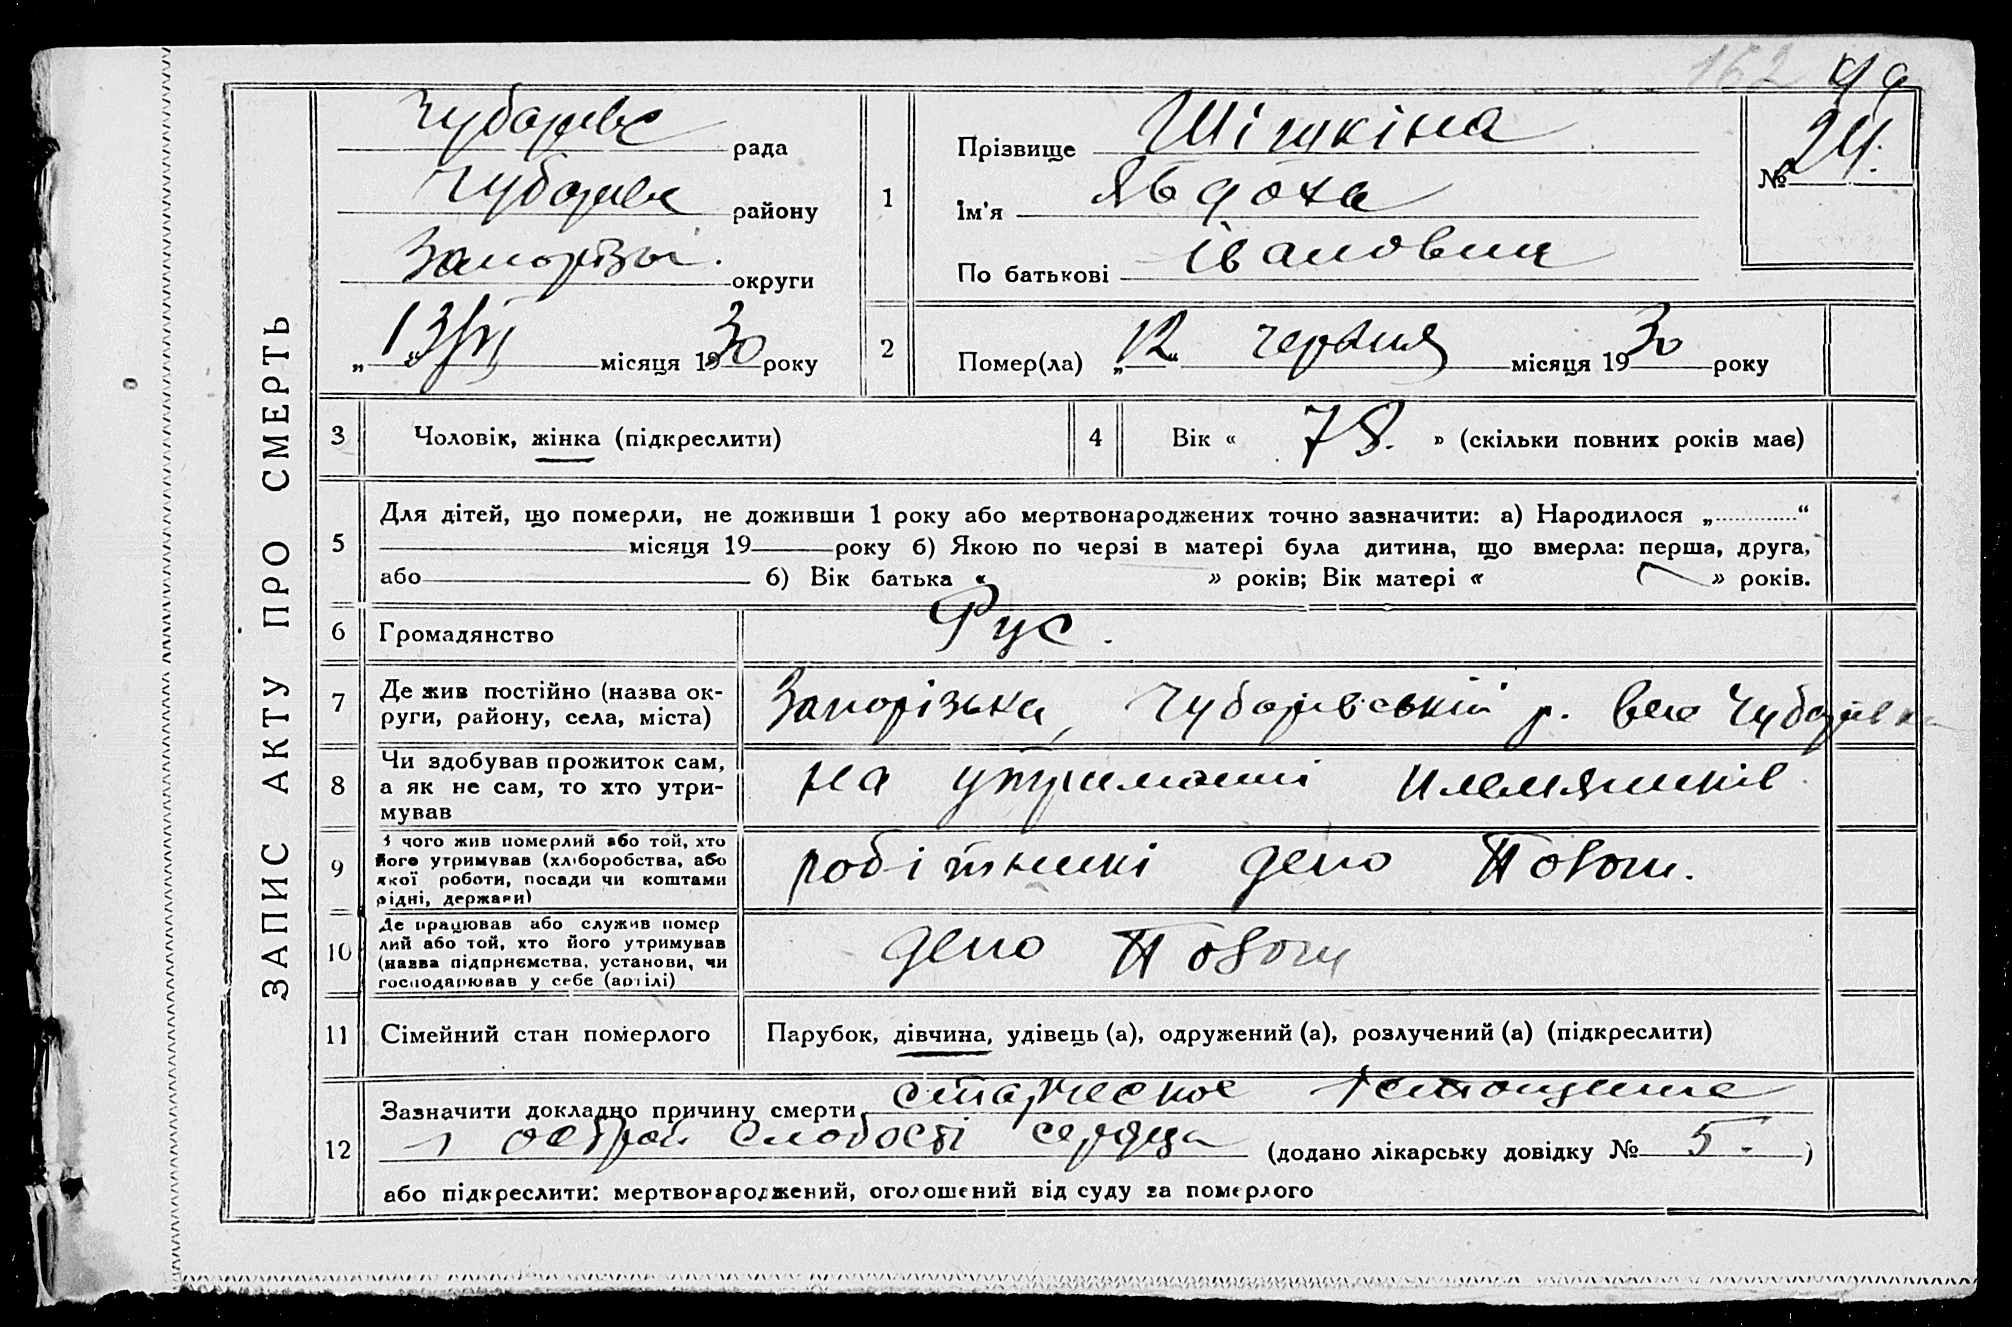 162
ЗАПИС АКТУ ПРО СМЕРТЬ
Чубарівс рада
Чубарівс району
Запорізьк. округи
„13/VI“ місяця 1930 року
1
Прізвище Шішкіна
Ім'я Явдоха
По батькові Івановна
№ 24.
2
Помер(ла) „12“ червня місяця 1930 року
3
Чоловік, жінка (підкреслити)
4
Вік « 78. » (скільки повних років має)
5
Для дітей, що померли, не доживши 1 року або мертвонароджених точно зазначити: а) Народилося „ “
місяця 19 року б) Якою по черзі в матері була дитина, що вмерла: перша, друга,
або б) Вік батька « » років; Вік матері « » років.
6
Громадянство Рус.
7
Де жив постійно (назва ок-
руги, району, села, міста)
Запорізька, Чубарівській р. село Чубарівка
8
Чи здобував прожиток сам,
а як не сам, то хто утри-
мував
на утриманні племяників
9
З чого жив померлий або той, хто
його утримував (хліборобства, або
якої роботи, посади чи коштами
рідні, держави)
робітникі депо Пологи.
10
Де працював або служив помер
лий або той, хто його утримував
(назва підприємства, установи, чи
господарював у себе (артілі)
депо Пологи
11
Сімейний стан померлого
Парубок, дівчина, удівець (а), одружений (а), розлучений (а) (підкреслити)
12
Зазначити докладно причину смерти старческое істощение
і острой слабості сердца (додано лікарську довідку № 5. )
або підкреслити: мертвонароджений, оголошений від суду за померлого